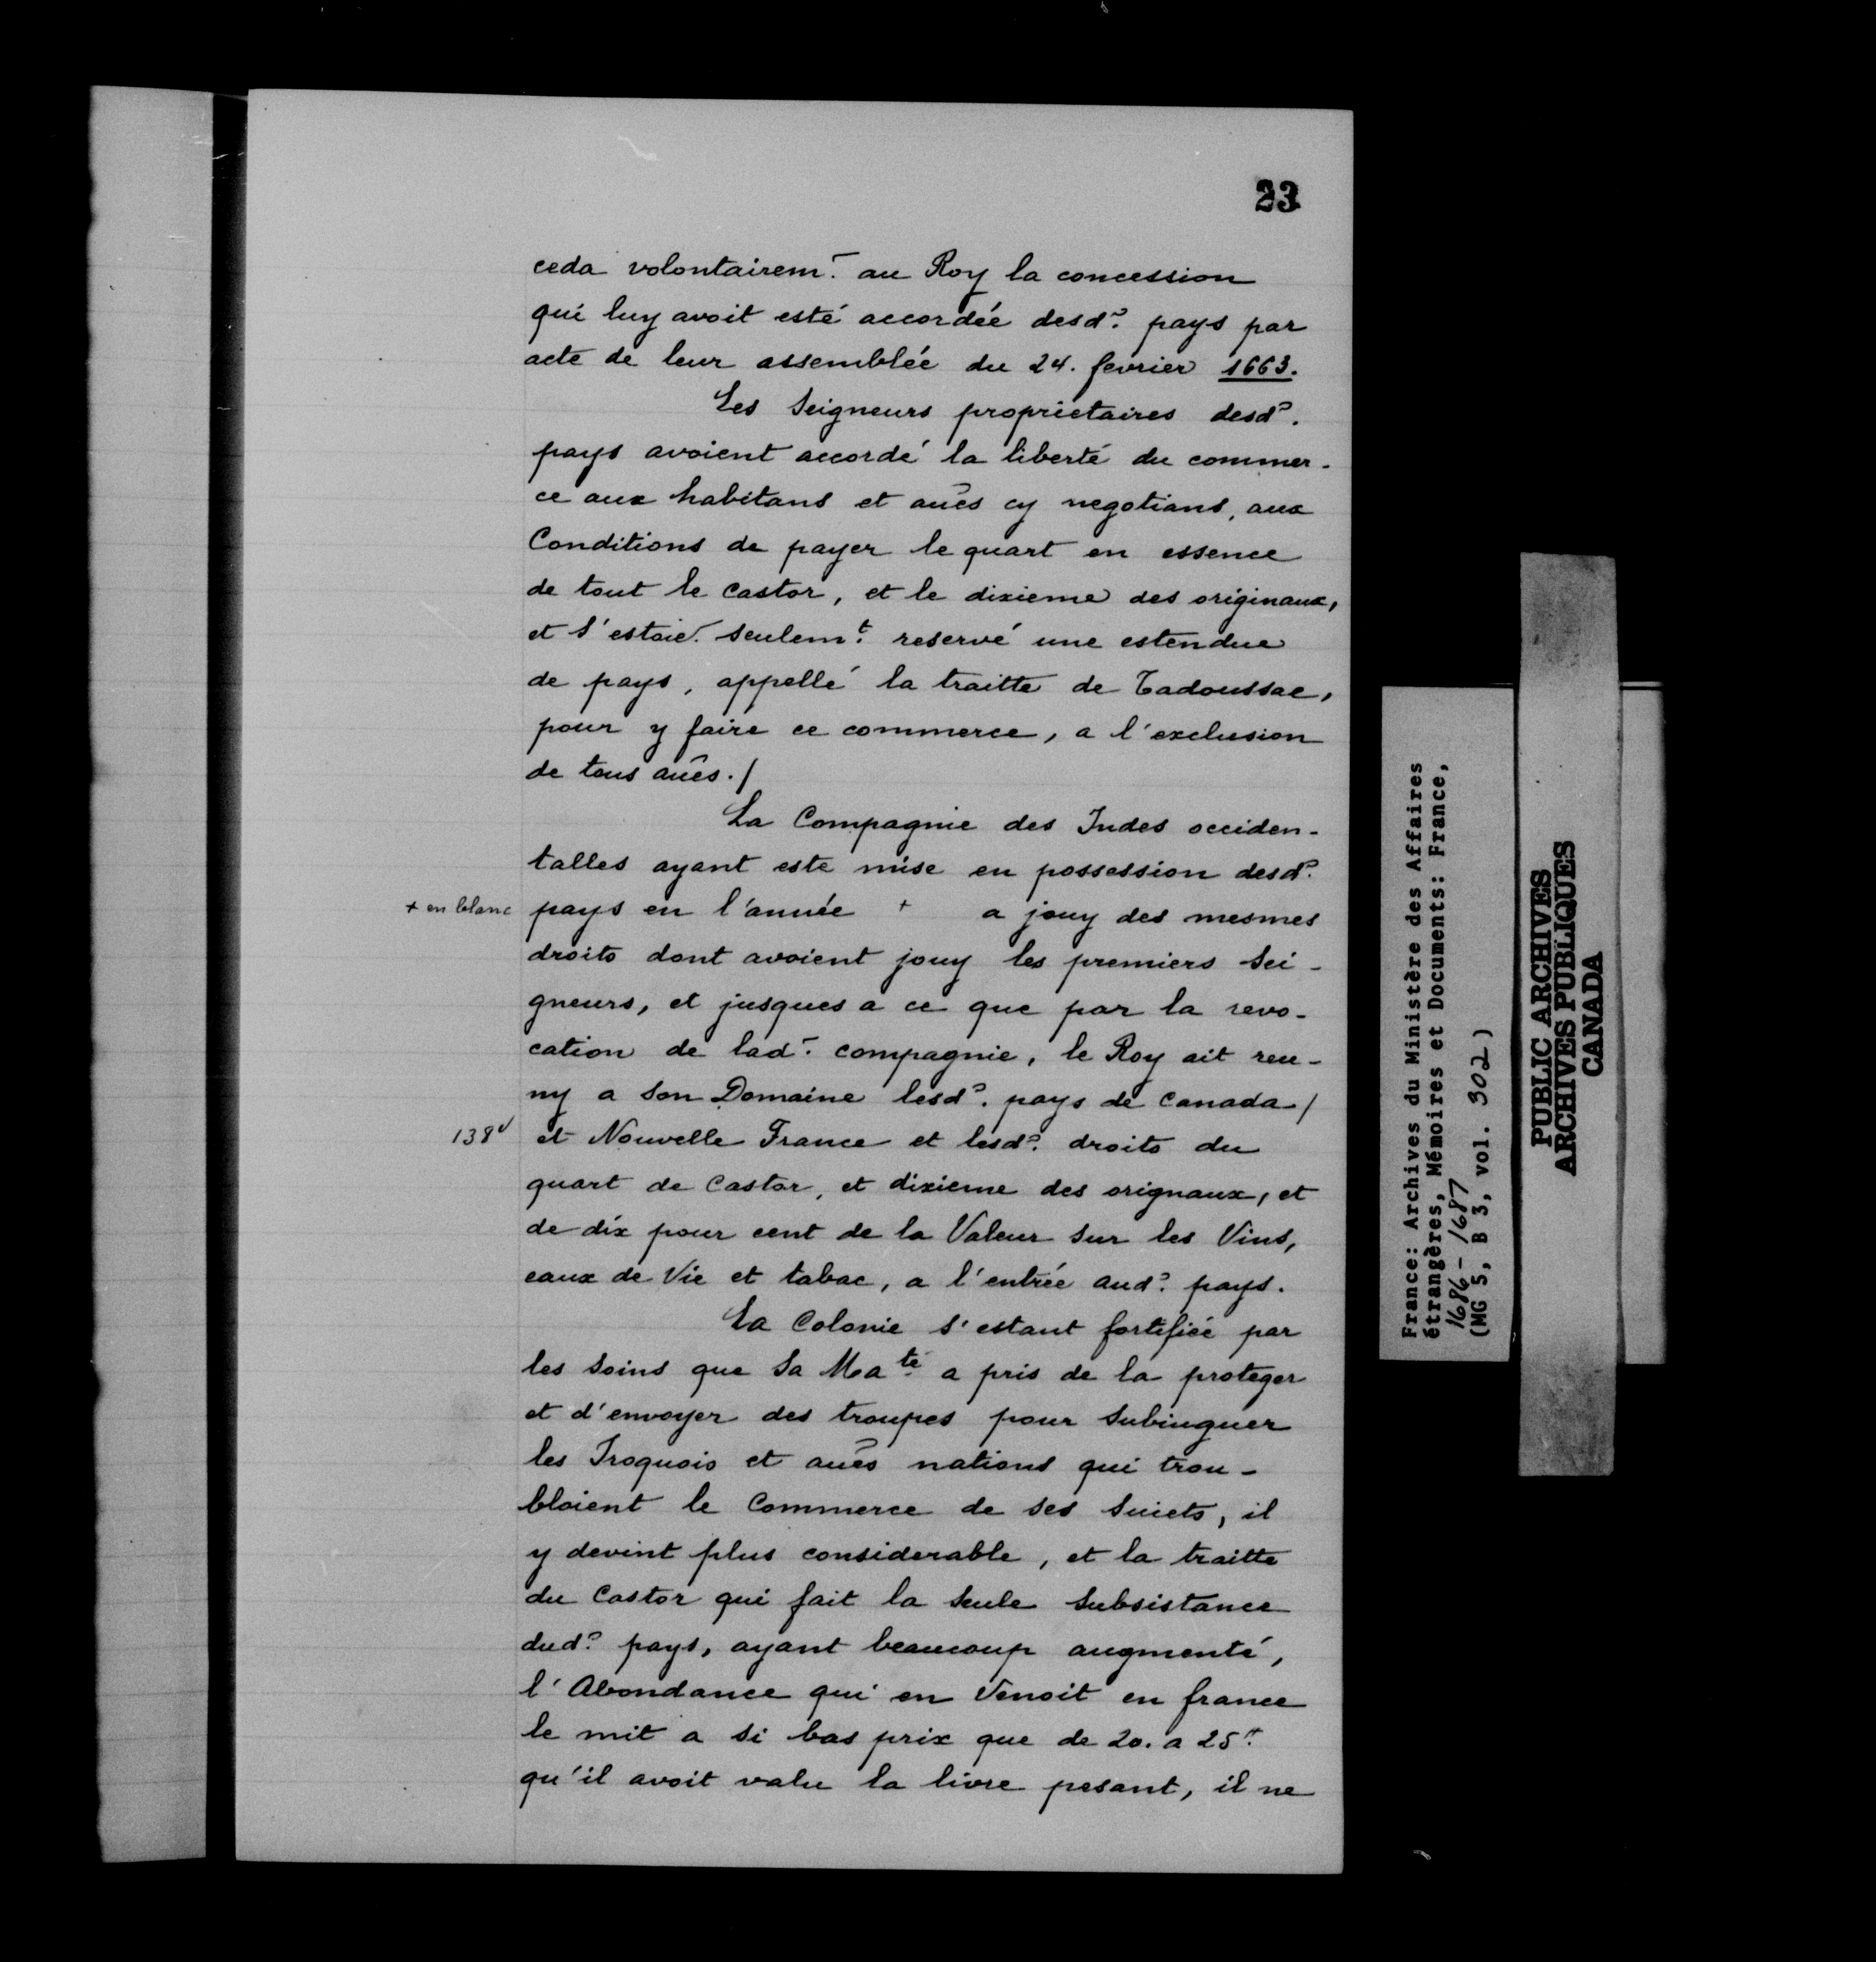 23
ceda volontairemt. au Roy la concession
qui luy avoit esté accordée desd?. pays par
acte de leur assemblée du 24. fevrier 1663.
Les Seigneurs proprietaires desd?.
pays avoient accordé la liberté du commer-
ce aux habitans et aûes cy negotians, aux
Conditions de payer le quart en essence
de tout le Castor, et le dixieme des originaux,
et s'estoiet. seulemt. reservé une estendue
de pays, appellé la traitte de Tadoussac,
pour y faire ce commerce, a l'exclusion
de tous aûes./
La Compagnie des Indes occiden-
talles ayant este mise en possession desd?.
+ en blanc pays en l'année + a jouy des mesmes
droits dont avoient jouy les premiers Sei-
gneurs, et jusques a ce que par la revo-
cation de ladt. compagnie, le Roy ait reu-
ny a son Domaine lesd?. pays de Canada /
138v et Nouvelle France et lesd?. droits du
quart de Castor, et dixieme des orignaux, et
de dix pour cent de la Valeur sur les Vins,
eaux de Vie et tabac, a l'entrée aud?. pays.
La Colonie s'estant fortifiée par
les soins que Sa Maté. a pris de la proteger
et d'envoyer des troupes pour subiuguer
les Iroquois et aûes nations qui trou-
bloient le Commerce de ses suiets, il
y devint plus considerable, et la traitte
du Castor qui fait la seule subsistance
dud?. pays, ayant beaucoup augmenté,
l'Abondance qui en Venoit en france
le mit a si bas prix que de 20. a 25tt.
qu'il avoit valu la livre pesant, il ne
France: Archives du Ministère des Affaires
étrangères, Mémoires et Documents: France,
1686-1687
(MG 5, B 3, vol. 302)
PUBLIC ARCHIVES
ARCHIVES PUBLIQUES
CANADA